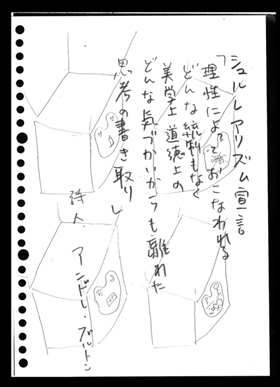 シュルレアリズム宣言
「理性によっておこなわれる
どんな統制もなく
美学上道徳上の
どんな気づかいからも離れた
思考の書き取り」
詩人 アンドレ・ブルトン